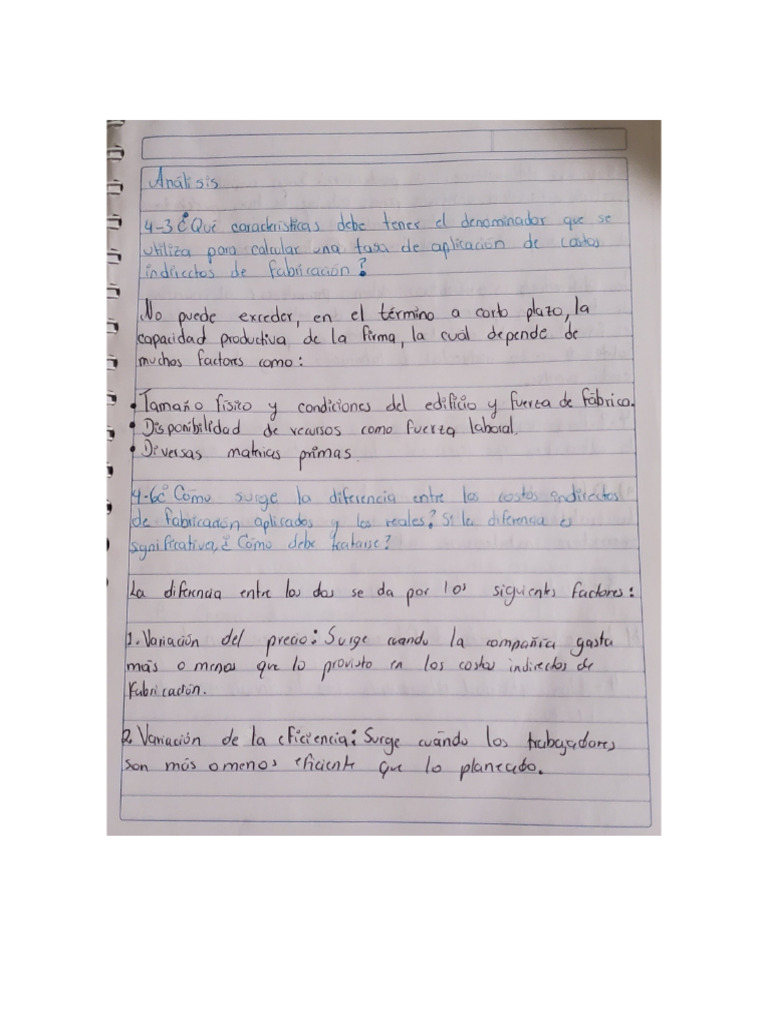 Análisis
4-3 ¿Qué características debe tener el denominador que se
utiliza para calcular una tasa de aplicación de costos
indirectos de fabricación?
No puede exceder, en el término a corto plazo, la
capacidad productiva de la firma, la cuál depende de
muchos factores como:
• Tamaño físico y condiciones del edificio y fuerza de fábrica.
• Disponibilidad de recursos como fuerza laboral.
• Diversas matrias primas.
4-6 ¿Cómo surge la diferencia entre los costos indirectos
de fabricación aplicados y los reales? Si la diferencia es
significativa, ¿Cómo debe tratarse?
La difencia entre los dos se da por los siguientes factores:
1. Variación del precio: Surge cuando la compañía gasta
más o menos que lo provisto en los costos indirectos de
fabricación.
2. Variación de la eficiencia: Surge cuándo los trabajadores
son más o menos eficiente que lo planeado.